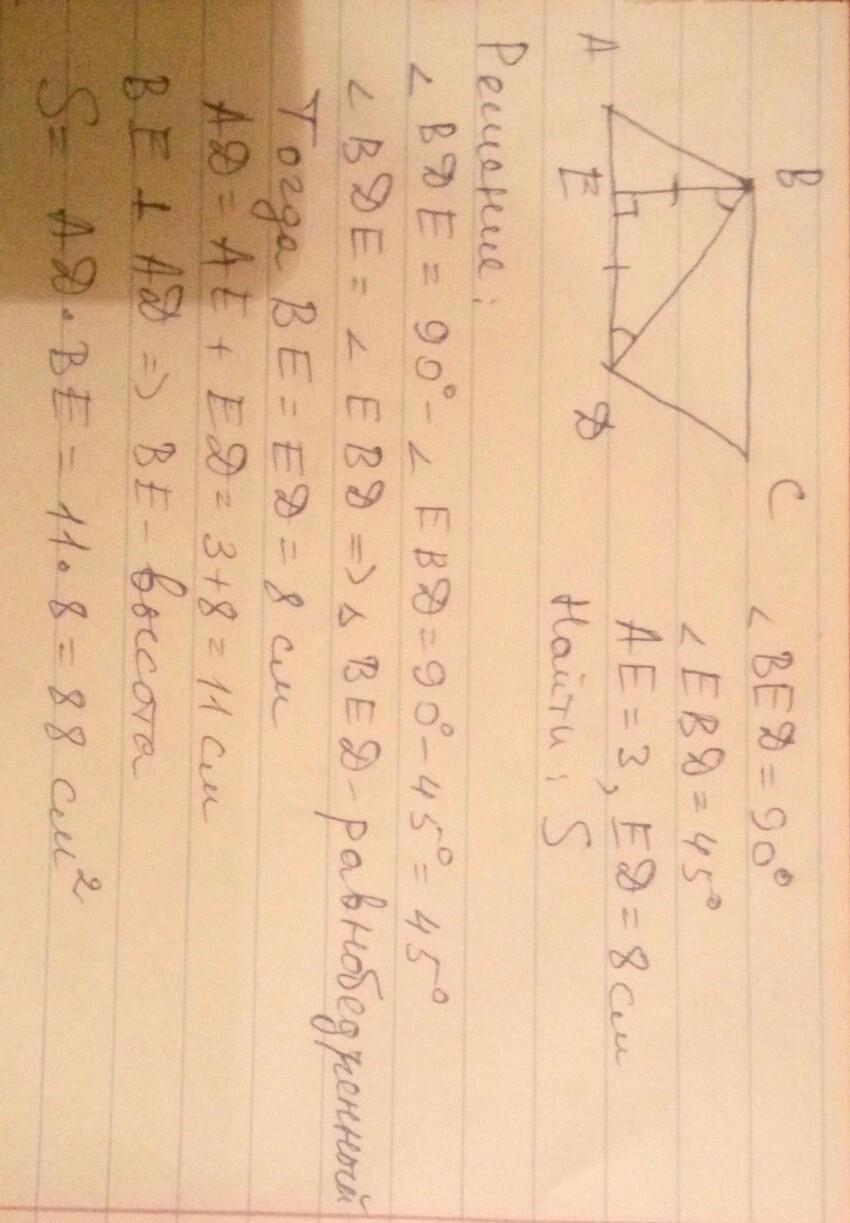 B
C
A
E
D
∠BED=90°
∠EBD=45°
AE=3, ED=8см
Найти: S
Решение:
∠BDE=90°-∠EBD=90°-45°=45°
∠BDE=∠EBD=>△BED-равнобедренный
Тогда BE=ED=8см
AD=AE+ED=3+8=11см
BE⊥AD=>BE-высота
S=AD·BE=11·8=88см²